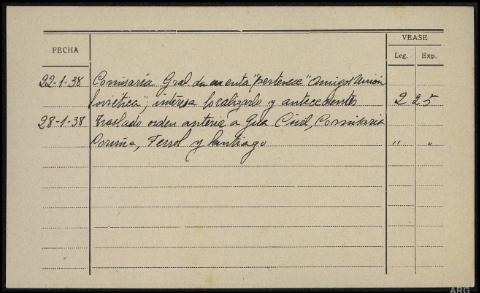 VEASE
FECHA
Leg. Exp.
22-1-38 Comisaría Gral. da cuenta, "pertenece" Amigos Unión
Soviética; interesa localizarlo y antecedentes 2 25
28-1-38 Traslado orden anterior a Gda Civil, Comisaría
Coruña, Ferrol y Santiago " "
ARG